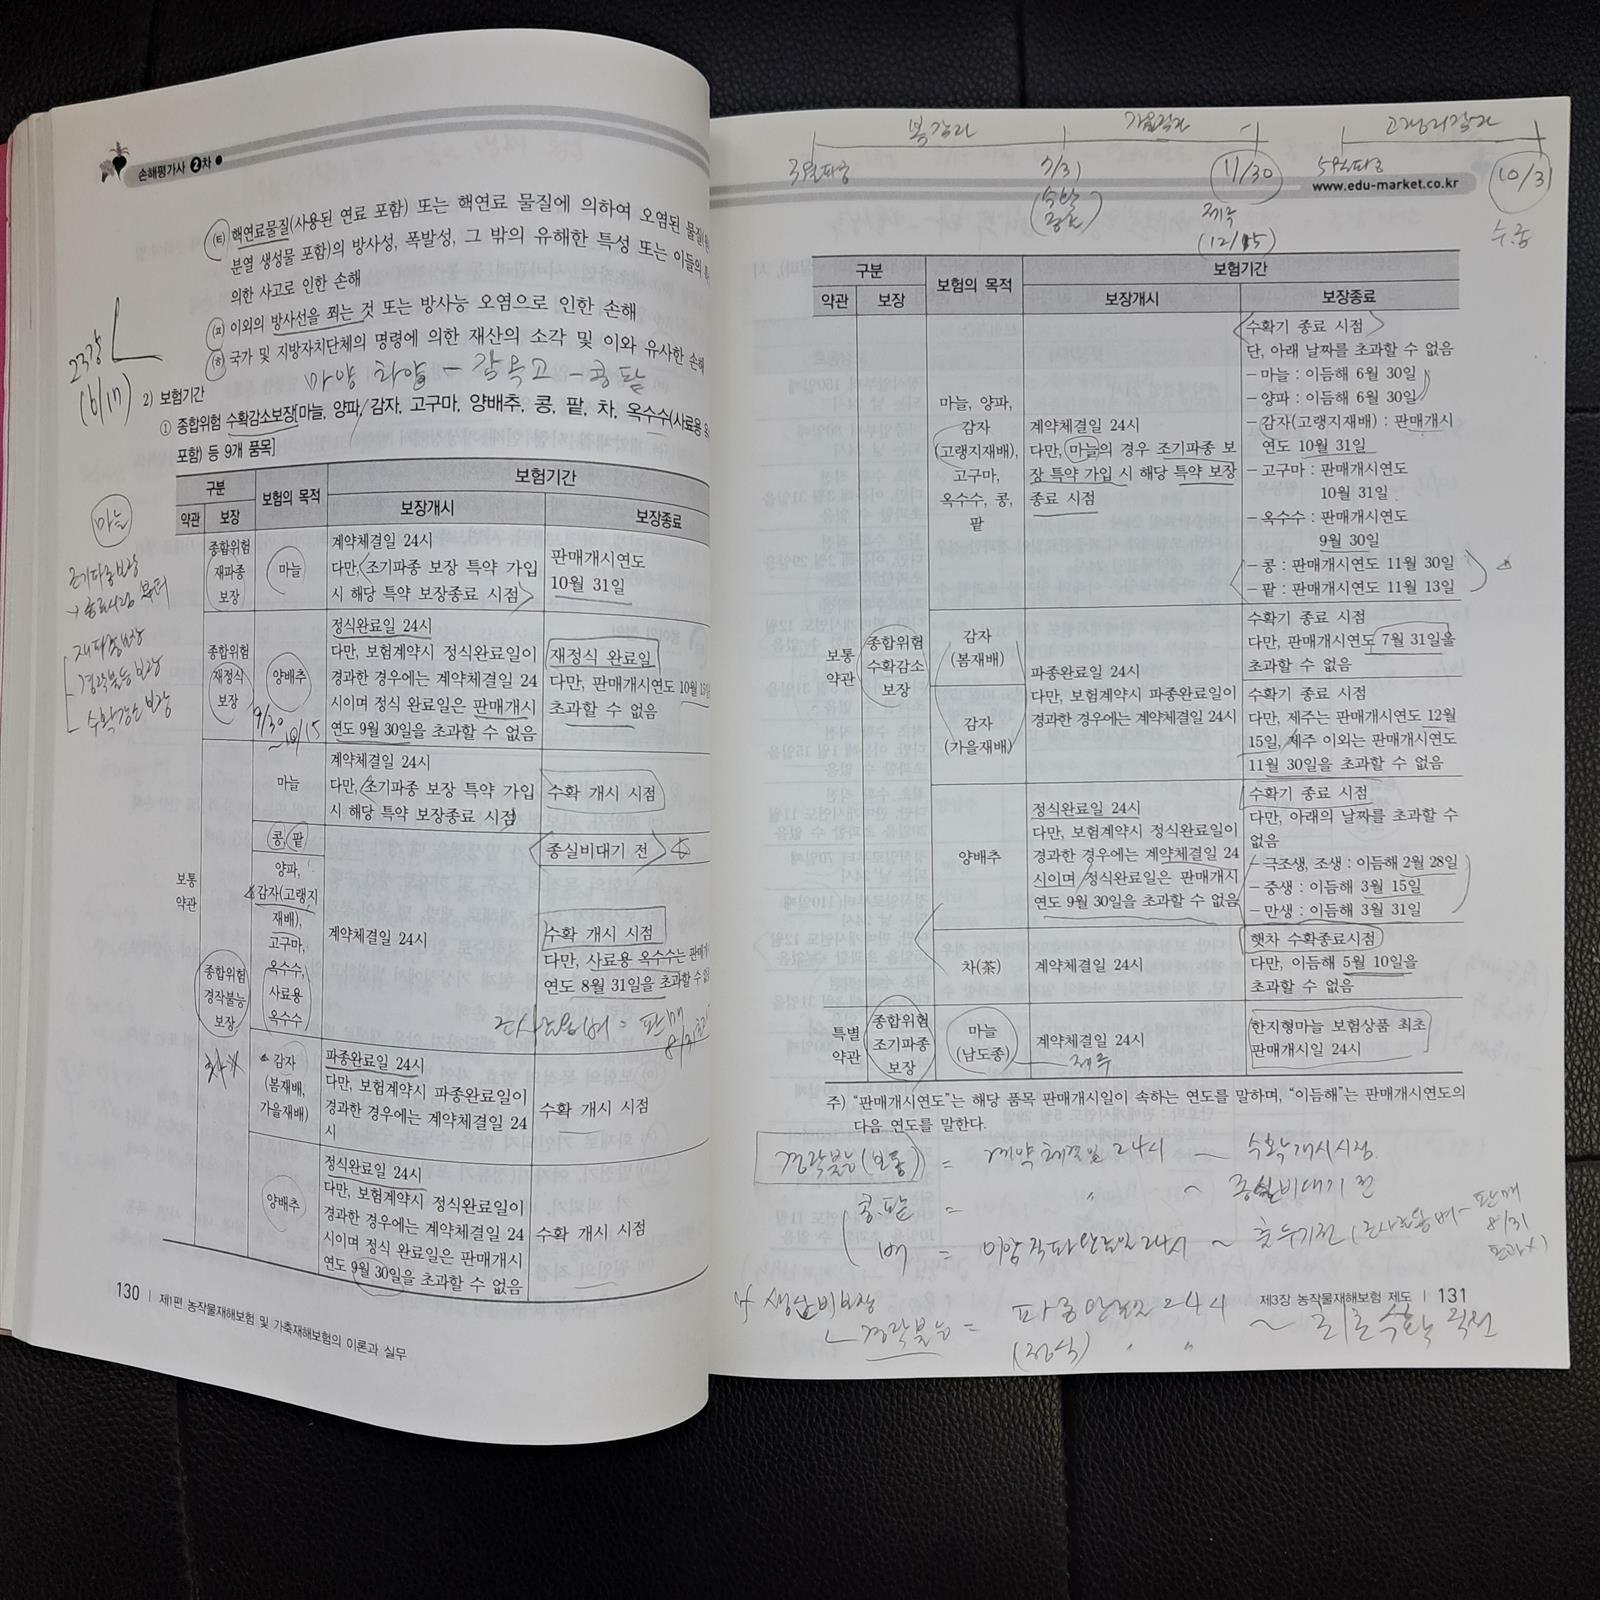 손해평가사 2차
(ㅌ) 핵연료물질(사용된 연료 포함) 또는 핵연료 물질에 의하여 오염된 물질
분열 생성물 포함)의 방사성, 폭발성, 그 밖의 유해한 특성 또는 이들의
의한 사고로 인한 손해
(ㅍ) 이외의 방사선을 쬐는 것 또는 방사능 오염으로 인한 손해
(ㅎ) 국가 및 지방자치단체의 명령에 의한 재산의 소각 및 이와 유사한 손해
23강
(6/17)
마양 차양 - 감옥고 - 콩팥
2) 보험기간
① 종합위험 수확감소보장[마늘, 양파, 감자, 고구마, 양배추, 콩, 팥, 차, 옥수수(사료용
포함) 등 9개 품목]
구분
보험의 목적
보험기간
약관
보장
보장개시
보장종료
마늘
조기파종보장
재파종보장
경작불능보장
수확감소보장
종합위험
재파종
보장
마늘
계약체결일 24시
다만, 조기파종 보장 특약 가입
시 해당 특약 보장종료 시점
판매개시연도
10월 31일
종합위험
재정식
보장
양배추
9/30
~10/15
정식완료일 24시
다만, 보험계약시 정식완료일이
경과한 경우에는 계약체결일 24
시이며 정식 완료일은 판매개시
연도 9월 30일을 초과할 수 없음
재정식 완료일
다만, 판매개시연도 10월 15일
초과할 수 없음
보통
약관
종합위험
경작불능
보장
마늘
계약체결일 24시
다만, 조기파종 보장 특약 가입
시 해당 특약 보장종료 시점
수확 개시 시점
콩, 팥
종실비대기 전
양파,
감자(고랭지
재배),
고구마,
옥수수,
사료용
옥수수
계약체결일 24시
수확 개시 시점
다만, 사료용 옥수수는 판매개시
연도 8월 31일을 초과할 수 없음
감자
(봄재배,
가을재배)
파종완료일 24시
다만, 보험계약시 파종완료일이
경과한 경우에는 계약체결일 24
시
수확 개시 시점
양배추
정식완료일 24시
다만, 보험계약시 정식완료일이
경과한 경우에는 계약체결일 24
시이며 정식 완료일은 판매개시
연도 9월 30일을 초과할 수 없음
수확 개시 시점
130 | 제1편 농작물재해보험 및 가축재해보험의 이론과 실무
봄감자 가을감자 고랭지감자
3월파종 7/31 11/30 5월파종 10/31
제주
(12/15)
www.edu-market.co.kr
구분
보험의 목적
보험기간
약관
보장
보장개시
보장종료
보통
약관
종합위험
수확감소
보장
마늘, 양파,
감자
(고랭지재배),
고구마,
옥수수, 콩,
팥
계약체결일 24시
다만, 마늘의 경우 조기파종 보
장 특약 가입 시 해당 특약 보장
종료 시점
수확기 종료 시점
단, 아래 날짜를 초과할 수 없음
- 마늘 : 이듬해 6월 30일
- 양파 : 이듬해 6월 30일
- 감자(고랭지재배) : 판매개시
연도 10월 31일
- 고구마 : 판매개시연도
10월 31일
- 옥수수 : 판매개시연도
9월 30일
- 콩 : 판매개시연도 11월 30일
- 팥 : 판매개시연도 11월 13일
감자
(봄재배)
감자
(가을재배)
파종완료일 24시
다만, 보험계약시 파종완료일이
경과한 경우에는 계약체결일 24시
수확기 종료 시점
다만, 판매개시연도 7월 31일을
초과할 수 없음
수확기 종료 시점
다만, 제주는 판매개시연도 12월
15일, 제주 이외는 판매개시연도
11월 30일을 초과할 수 없음
양배추
정식완료일 24시
다만, 보험계약시 정식완료일이
경과한 경우에는 계약체결일 24
시이며 정식완료일은 판매개시
연도 9월 30일을 초과할 수 없음
수확기 종료 시점
다만, 아래의 날짜를 초과할 수
없음
- 극조생, 조생 : 이듬해 2월 28일
- 중생 : 이듬해 3월 15일
- 만생 : 이듬해 3월 31일
차(茶)
계약체결일 24시
햇차 수확종료시점
다만, 이듬해 5월 10일을
초과할 수 없음
특별
약관
종합위험
조기파종
보장
마늘
(남도종)
계약체결일 24시
제주
한지형마늘 보험상품 최초
판매개시일 24시
주) "판매개시연도"는 해당 품목 판매개시일이 속하는 연도를 말하며, "이듬해"는 판매개시연도의
다음 연도를 말한다.
경작불능(보통) = 계약체결일 24시 ~ 수확개시시점
콩.팥 = 〃 ~ 종실비대기 전
벼 = 이앙직파완료일 24시 ~ 출수기전
생산비보장
경작불능 = 파종완료일 24시 ~ 최초수확 직전
(정식) 〃 〃
제3장 농작물재해보험 제도 | 131